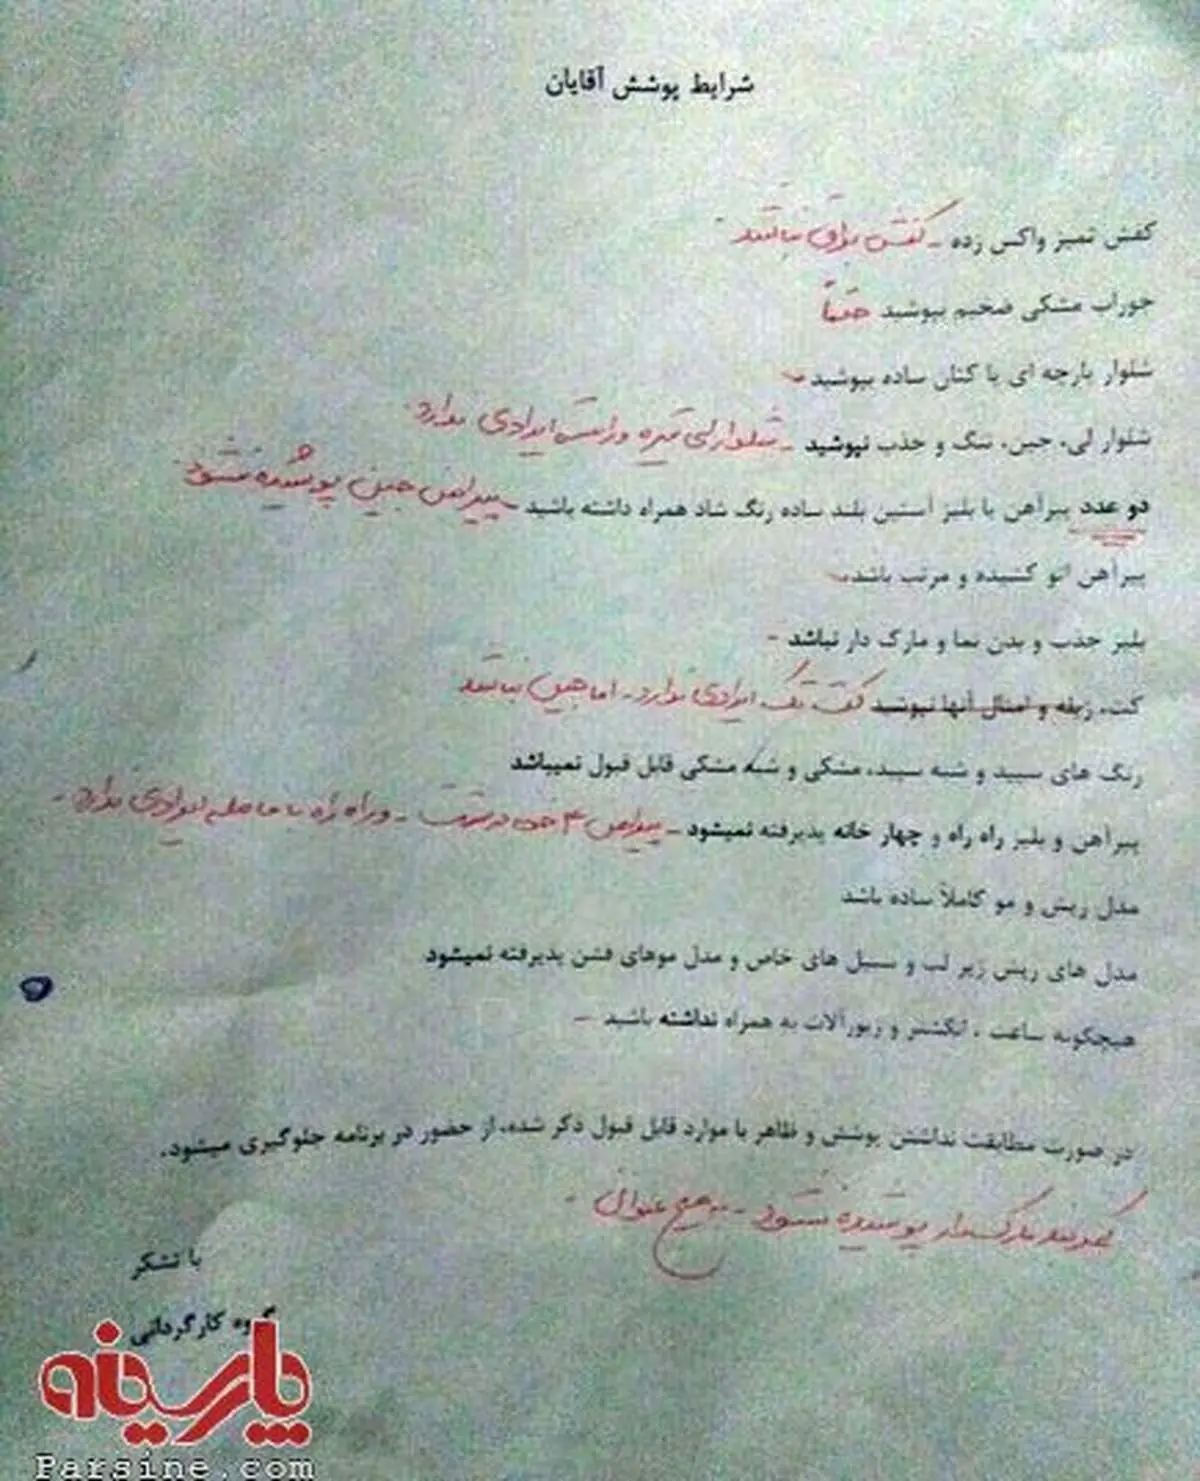 شرایط پوشش آقایان
کفش تمیز واکس زده - کفش براق نباشد
جوراب مشکی ضخیم بپوشید حتماً
شلوار پارچه ای یا کتان ساده بپوشید
شلوار لی، جین، تنگ و جذب نپوشید - شلوار لی تیره و راسته ایرادی ندارد.
دو عدد پیراهن یا بلیز آستین بلند ساده رنگ شاد همراه داشته باشید - پیراهن جین پوشیده نشود.
پیراهن اتو کشیده و مرتب باشد
بلیز جذب و بدن نما و مارک دار نباشد -
کت، ژیله و امثال آنها نپوشید کت تک ایرادی ندارد - اما جین نباشد
رنگ های سپید و شبه سپید، مشکی و شبه مشکی قابل قبول نمیباشد
پیراهن و بلیز راه راه و چهار خانه پذیرفته نمیشود - پیراهن ۴ خونه درشت - و راه راه با فاصله ایرادی ندارد -
مدل ریش و مو کاملاً ساده باشد
مدل های ریش زیر لب و سبیل های خاص و مدل موهای فشن پذیرفته نمیشود
هیچگونه ساعت ، انگشتر و زیورآلات به همراه نداشته باشید -
در صورت مطابقت نداشتن پوشش و ظاهر با موارد قابل قبول ذکر شده، از حضور در برنامه جلوگیری میشود.
کمربند مارک دار پوشیده نشود - به هیچ عنوان -
با تشکر
گروه کارگردانی
پارسینه
Parsine.com